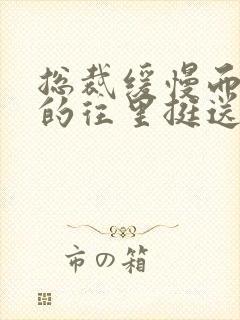 总裁缓慢而
的往里挺送
市の箱